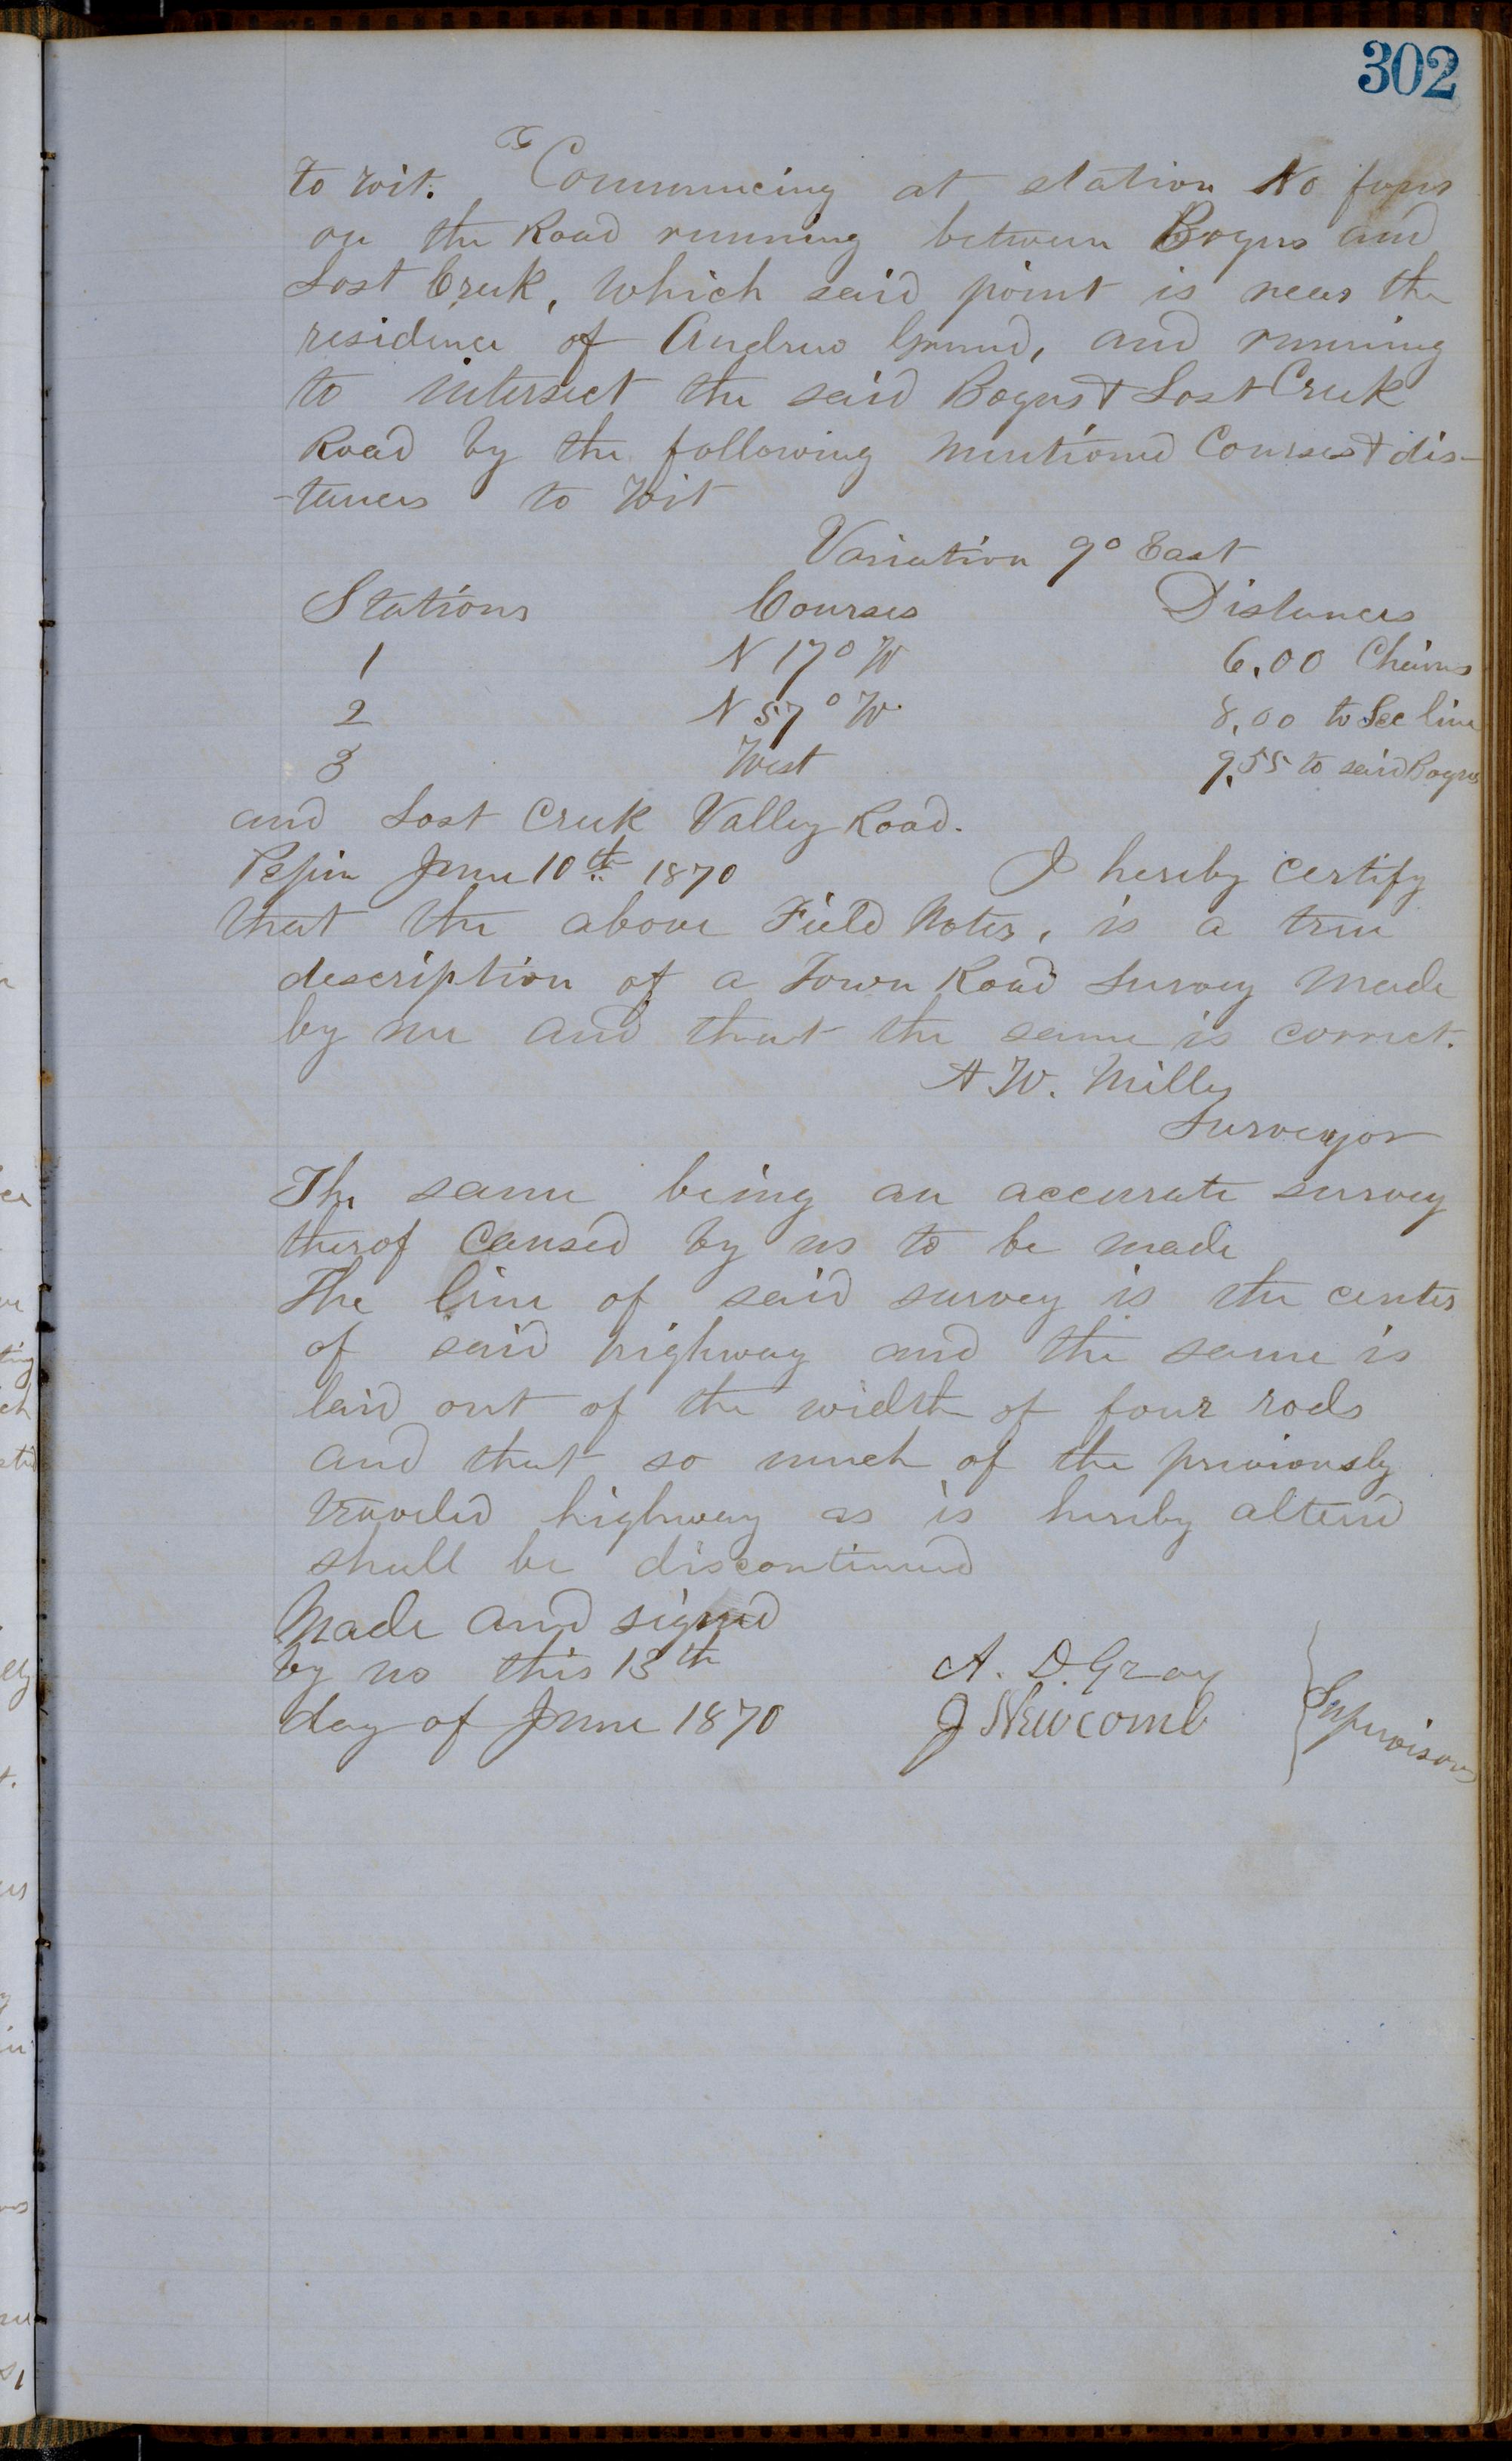 302
to wit. Commencing at station No four
on the Road running between Bogus and
Lost Creek, which said point is near the
residence of Andrew and running
to intersect the said Bogus & Lost Creek
Road by the following mentioned Courses & dis-
-tances to wit
Variation 9° East
Stations Courses Distances
1 N 17° W 6.00 Chains
2 N 57° W. 8.00 to Sec line
3 West 9.55 to said Bogus
and Lost Creek Valley Road.
Pepin June 10th 1870 I hereby certify
that the above Field Notes, is a true
description of a Town Road Survey made
by me and that the same is correct.
A. W. Miller
Surveyor
The same being an accurate survey
therof caused by us to be made
The line of said survey is the center
of said highway and the same is
laid out of the width of four rods
and that so much of the previously
traveled highway as is hereby altered
shall be discontinued
Made and signed
by us this 13th A. D. Gray
day of June 1870 J Newcomb Supervisors